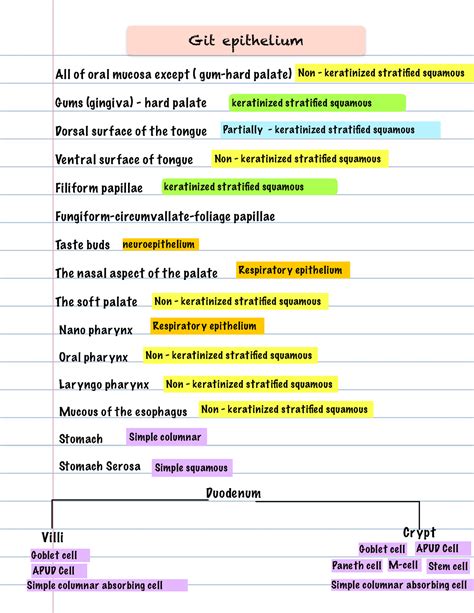 Git epithelium
All of oral mucosa except ( gum-hard palate) Non - keratinized stratified squamous
Gums (gingiva) - hard palate keratinized stratified squamous
Dorsal surface of the tongue Partially - keratinized stratified squamous
Ventral surface of tongue Non - keratinized stratified squamous
Filiform papillae keratinized stratified squamous
Fungiform-circumvallate-foliage papillae
Taste buds neuroepithelium
The nasal aspect of the palate Respiratory epithelium
The soft palate Non - keratinized stratified squamous
Nano pharynx Respiratory epithelium
Oral pharynx Non - keratinized stratified squamous
Laryngo pharynx Non - keratinized stratified squamous
Mucous of the esophagus Non - keratinized stratified squamous
Stomach Simple columnar
Stomach Serosa Simple squamous
Duodenum
Villi Crypt
Goblet cell Goblet cell APUD Cell
APUD Cell Paneth cell M-cell Stem cell
Simple columnar absorbing cell Simple columnar absorbing cell